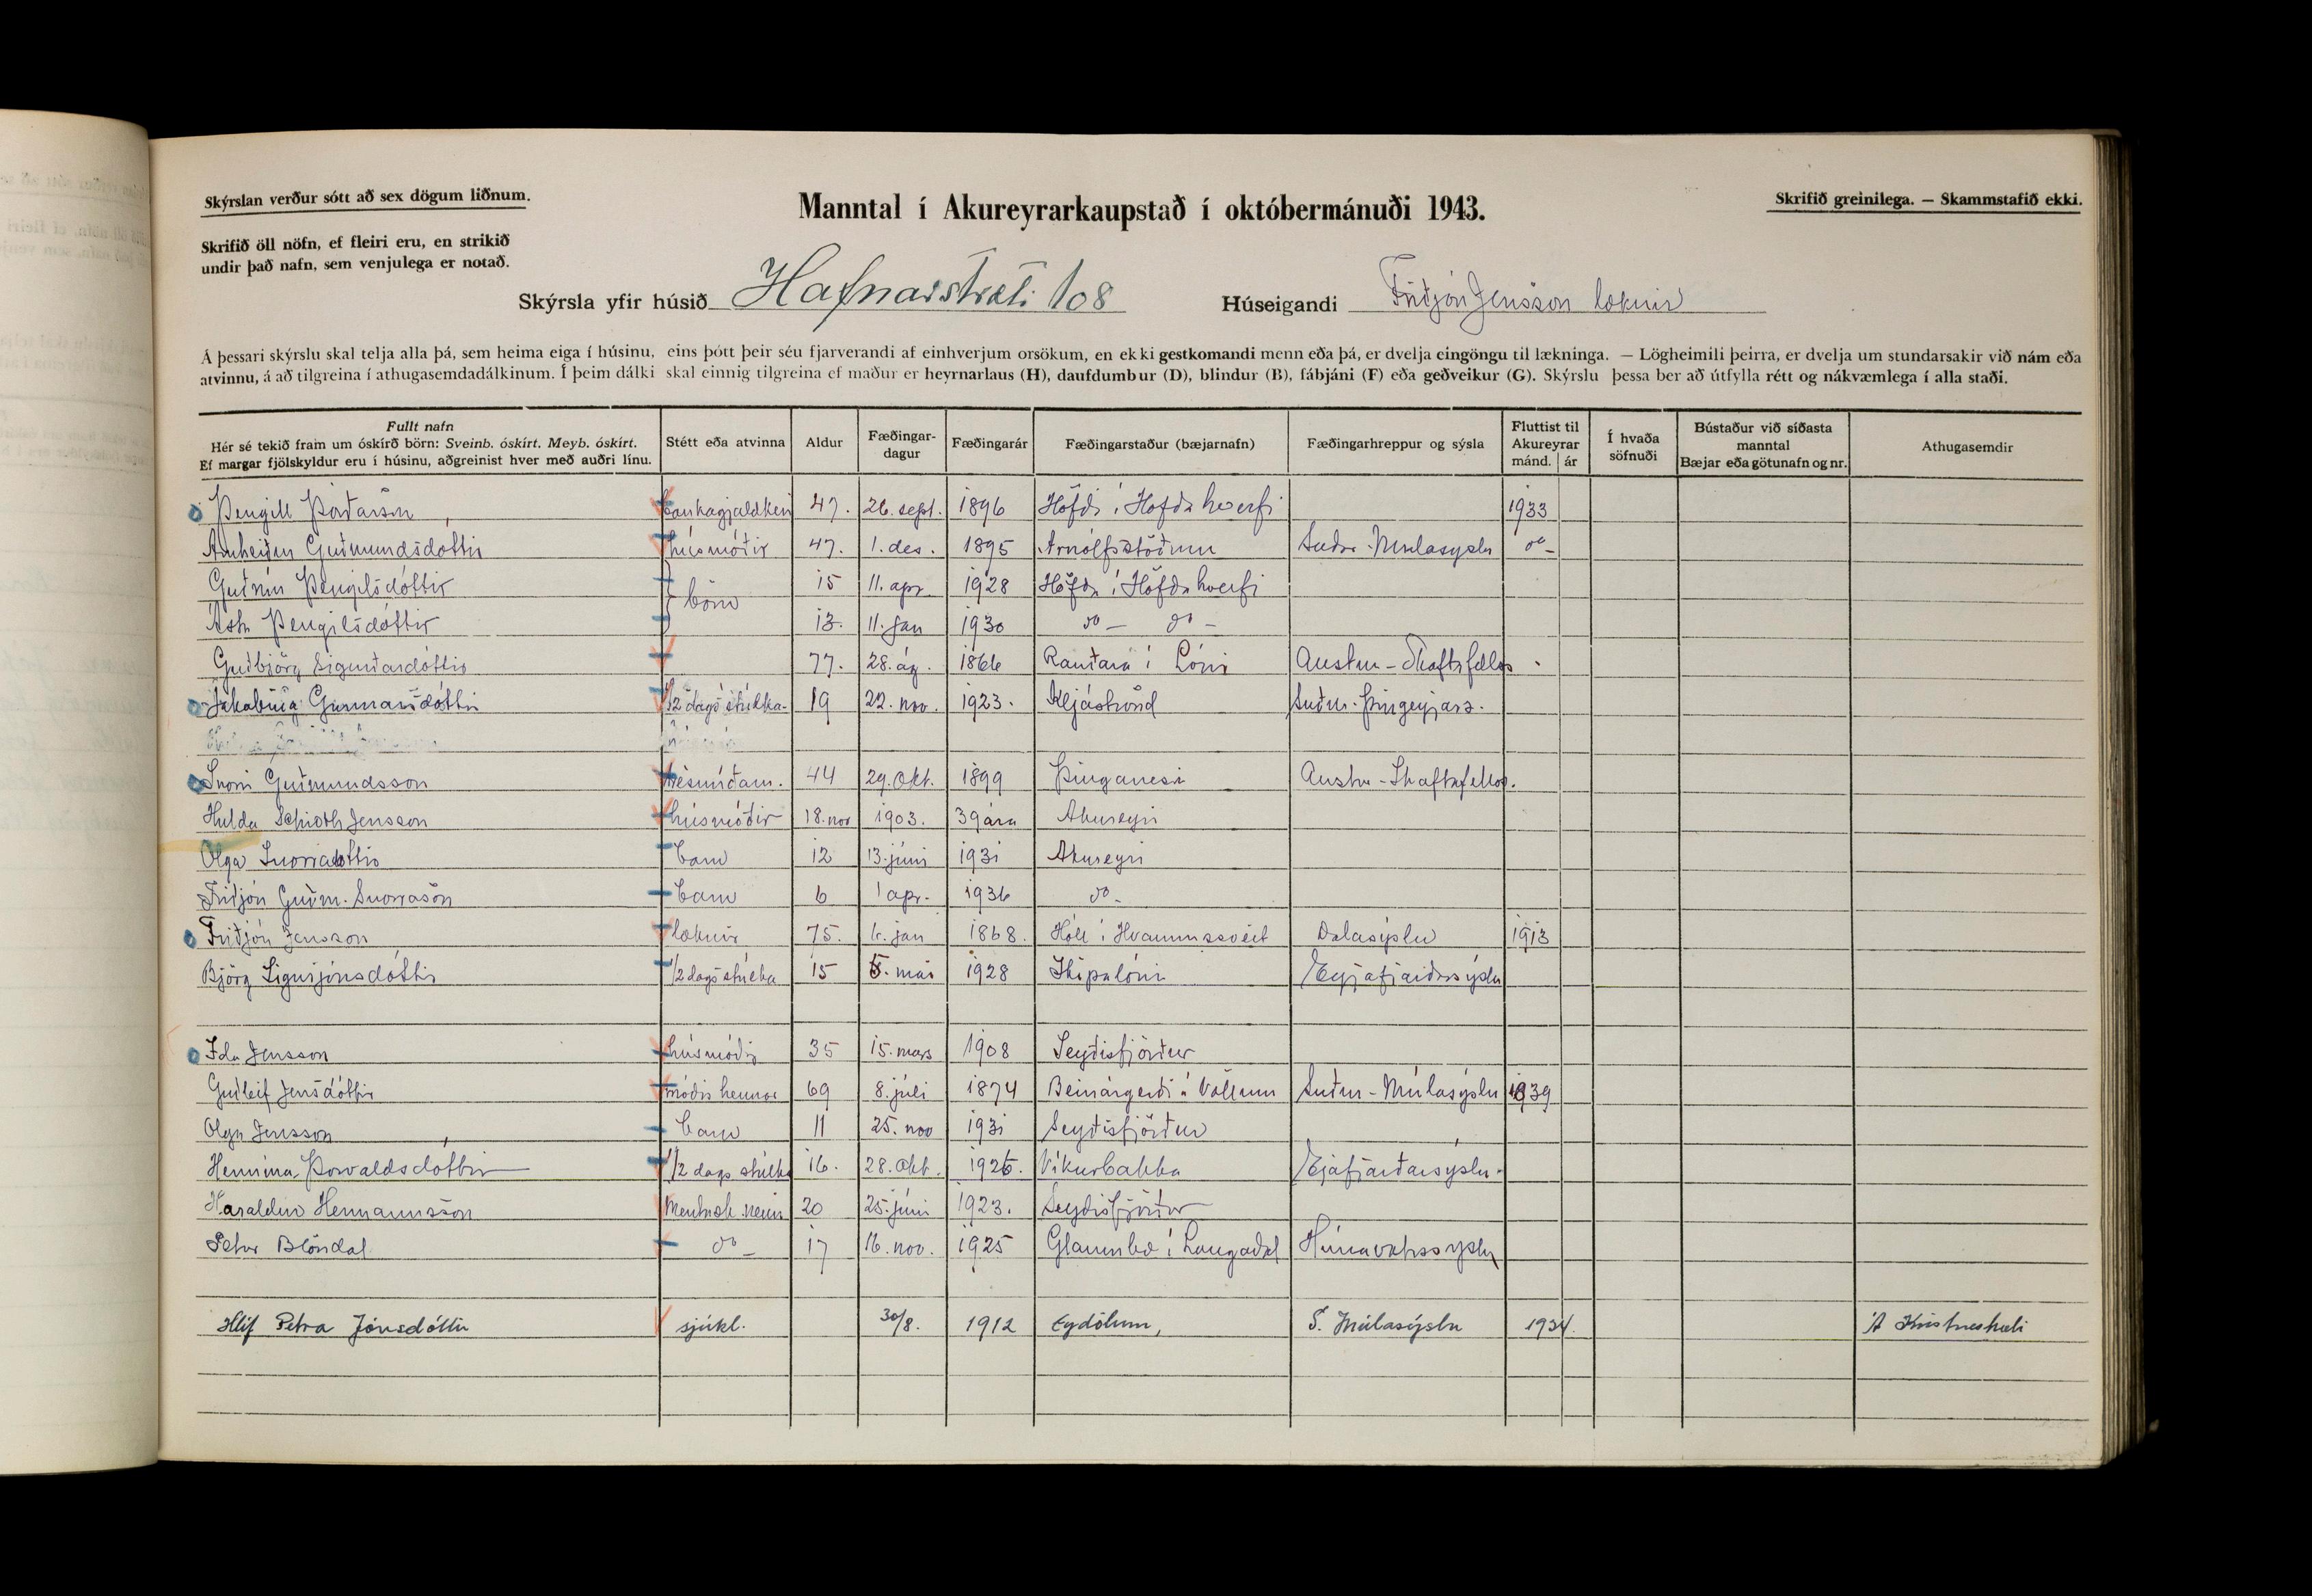 Skýrslan verður sótt að sex dögum liðnum.
Manntal í Akureyrarkaupstað í októbermánuði 1943.
Skrifið greinilega. — Skammstafið ekki.
Skrifið öll nöfn, ef fleiri eru, en strikið
undir það nafn, sem venjulega er notað.
Skýrsla yfir húsið Hafnarstræti 108 Húseigandi Friðjón Jensson læknir
Á þessari skýrslu skal telja alla þá, sem heima eiga í húsinu, eins þótt þeir séu fjarverandi af einhverjum orsökum, en ekki gestkomandi menn eða þá, er dvelja eingöngu til lækninga. — Lögheimili þeirra, er dvelja um stundarsakir við nám eða
atvinnu, á að tilgreina í athugasemdadálkinum. Í þeim dálki skal einnig tilgreina ef maður er heyrnarlaus (H), daufdumbur (D), blindur (B), fábjáni (F) eða geðveikur (G). Skýrslu þessa ber að útfylla rétt og nákvæmlega í alla staði.
Fullt nafn
Hér sé tekið fram um óskírð börn: Sveinb. óskírt. Meyb. óskírt.
Ef margar fjölskyldur eru í húsinu, aðgreinist hver með auðri línu.
Stétt eða atvinna
Aldur
Fæðingar-
dagur
Fæðingarár
Fæðingarstaður (bæjarnafn)
Fæðingarhreppur og sýsla
Fluttist til
Akureyrar
mánd. ár
Í hvaða
söfnuði
Bústaður við síðasta
manntal
Bæjar eða götunafn og nr.
Athugasemdir
Þengill Þórðarson bankagjaldkeri 47. 26. sept. 1896 Höfði í Höfðahverfi 1933
Arnheiður Guðmundsdóttir húsmóðir 47. 1. des. 1895 Arnólfsstöðum Suður-Múlasýslu do-
Guðrún Þengilsdóttir börn 15 11. apr. 1928 Höfða í Höfðahverfi
Ásta Þengilsdóttir 13. 11. jan 1930 do - do -
Guðbjörg Sigurðardóttir 77. 28. ág. 1866 Rauðará í Lóni Austur-Skaftafells
Jakobína Gunnarsdóttir 1/2 dags stúlka- 19 22. nov. 1923. Kljáströnd Suður-Þingeyjars.
Snorri Guðmundsson trésmíðam. 44 29. Okt. 1899 Þinganesi Austur-Skaftafells.
Hulda Schiöth Jensson húsmóðir 18. nov 1903. 39 ára Akureyri
Olga Snorradóttir barn 12 13. júní 1931 Akureyri
Friðjón Guðm. Snorrason barn 6 1 apr. 1936 do-
Friðjón Jensson læknir 75. 6. jan 1868. Hóll í Hvammssveit Dalasýslu 1913
Björg Sigurjónsdóttir 1/2 dags stúlka 15 5. maí 1928 Skipalóni Eyjafjarðarsýslu
Ida Jensson húsmóðir 35 15. mars 1908 Seyðisfjörður
Guðleif Jensdóttir móðir hennar 69 8. júlí 1874 Beinárgerði á Völlum Suður-Múlasýslu 1939
Olga Jensson barn 11 25. nov 1931 Seyðisfjörður
Hermína Þorvaldsdóttir 1/2 dags stúlka 16. 28. Okt. 1926. Víkurbakka Ejafjarðarsýslu.
Haraldur Hermannsson Mentask. nemi 20 25. júní 1923. Seyðisfjörður
Petur Blöndal do- 17 16. nov. 1925 Glaumbæ í Langadal Húnavatnssýslu
Hlíf Petra Jónsdóttir sjúkl. 30/8. 1912 Eydölum, S. Múlasýslu 1934. Á Kristneshæli